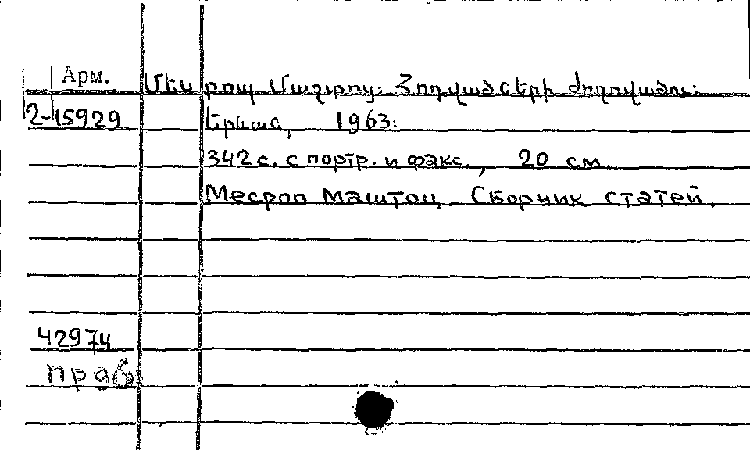 Арм. Մեսրոպ Մաշտոց. Հոդվածների ժողովածու:
2-15929 Երևան, 1963:
342 с. с портр. и факс., 20 см.
Месроп Маштоц. Сборник статей.
42974